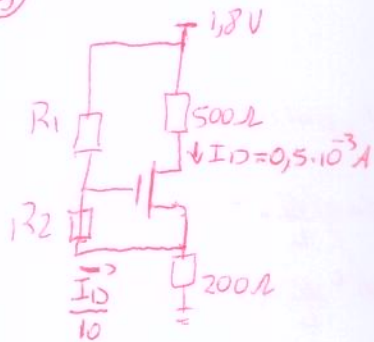 1,8V
R1
500Ω
↓ ID=0,5·10⁻³A
R2
ID
10
200Ω